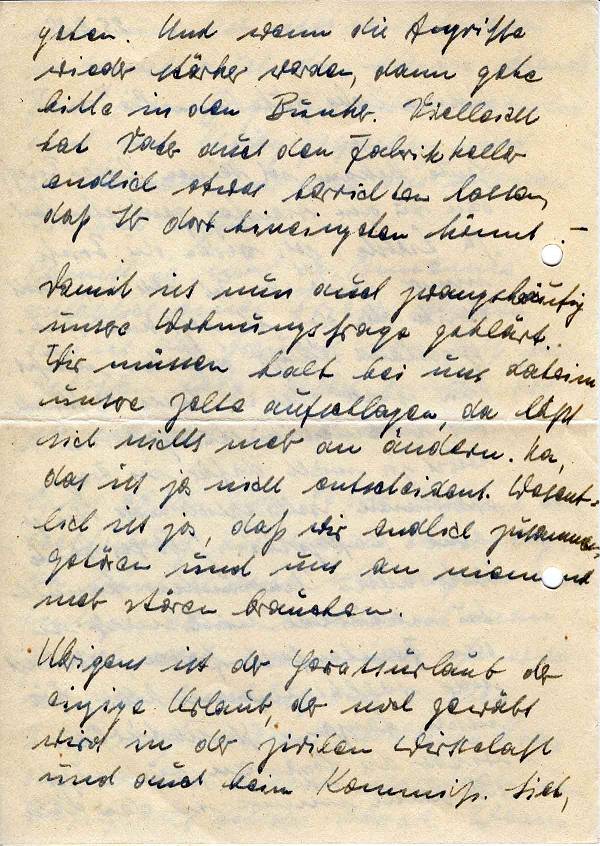 gehen. Und wenn die Angriffe
wieder stärker werden, dann gehe
bitte in den Bunker. Vielleicht
hat Vater auch den Fabrikkeller
endlich etwas herrichten lassen,
daß Ihr dort hineingehen könnt. –
Damit ist nun auch zwangsläufig
unsere Wohnungsfrage geklärt.
Wir müssen halt bei uns daheim
unsere Zelte aufschlagen, da läßt
sich nichts mehr an ändern. Na,
das ist ja nicht entscheidend. Wesent-
lich ist ja, daß wir endlich zusammen-
gehören und uns an niemand
mehr stören brauchen.
Übrigens ist der Heiratsurlaub der
einzige Urlaub, der noch gewährt
wird in der zivilen Wirtschaft
und auch beim Kommiß. Sieh,